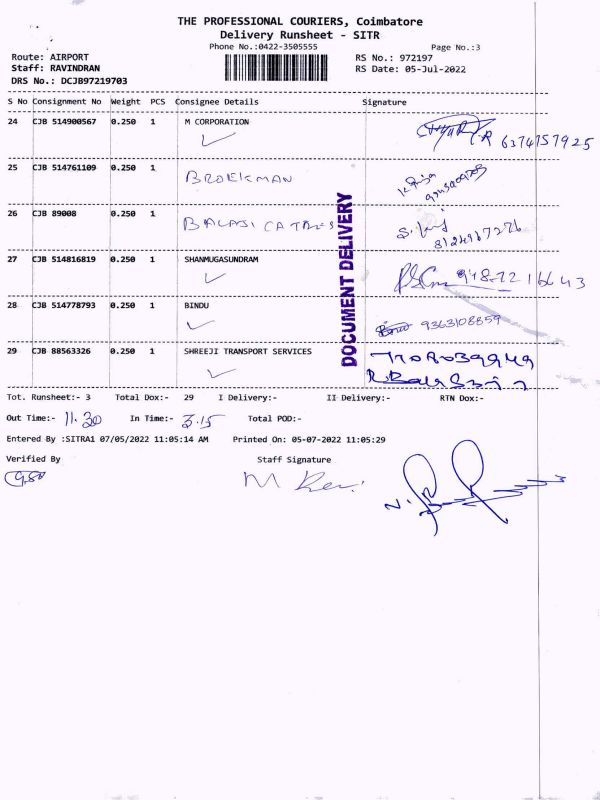 THE PROFESSIONAL COURIERS, Coimbatore
Delivery Runsheet - SITR
Phone No.:0422-3505555 Page No.:3
Route: AIRPORT RS No.: 972197
Staff: RAVINDRAN RS Date: 05-Jul-2022
DRS No.: DCJB97219703
S No Consignment No Weight PCS Consignee Details Signature
24 CJB 514900567 0.250 1 M CORPORATION 6374757925
25 CJB 514761109 0.250 1 BROEKMAN
26 CJB 89008 0.250 1 BALAJI 8124967276
27 CJB 514816819 0.250 1 SHANMUGASUNDRAM
28 CJB 514778793 0.250 1 BINDU 9363108859
29 CJB 88563326 0.250 1 SHREEJI TRANSPORT SERVICES
DOCUMENT DELIVERY
Tot. Runsheet:- 3 Total Dox:- 29 I Delivery:- II Delivery:- RTN Dox:-
Out Time:- 11.30 In Time:- 3.15 Total POD:-
Entered By :SITRA1 07/05/2022 11:05:14 AM Printed On: 05-07-2022 11:05:29
Verified By Staff Signature